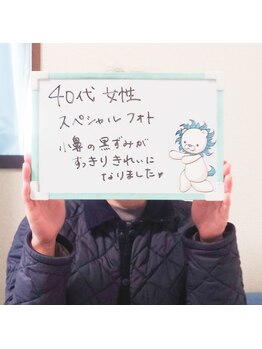 40代 女性
スペシャル フォト
小鼻の黒ずみが
すっきりきれいに
なりました♥